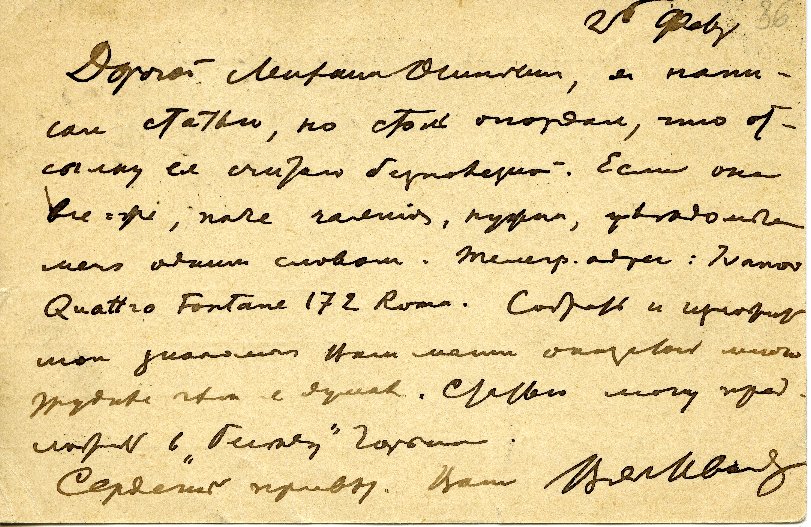 26 Февр 36
Дорогой Михаил Осипович, я напи-
сал статью, но столь опоздал, что от-
сылку ее считаю безполезной. Если она
все-же, паче чаяния, нужна, уведомьте
меня одним словом. Телегр. адрес: Ivanov
Quattro Fontane 172 Roma. Собрать и
мои Вами мысли оказалось много
труднее чем я думал. Статью могу пред-
ложить в „Беседу" Горькаго.
Сердечный привет. Ваш Вяч Иванов